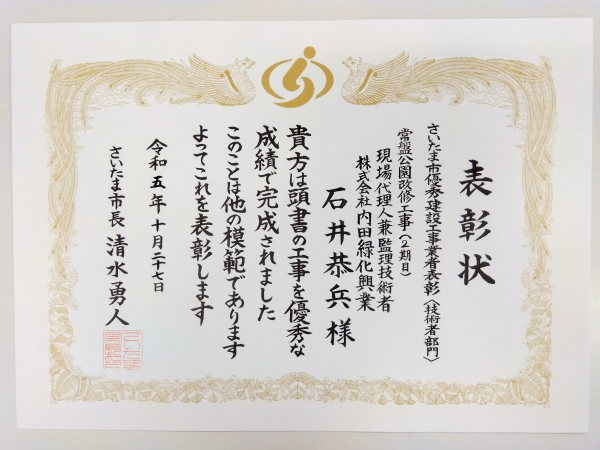 表彰状
さいたま市優秀建設工事業者表彰〈技術者部門〉
常盤公園改修工事(2期目)
現場代理人兼監理技術者
株式会社内田緑化興業
石井恭兵様
貴方は頭書の工事を優秀な
成績で完成されました
このことは他の模範であります
よってこれを表彰します
令和五年十月二十七日
さいたま市長 清水勇人